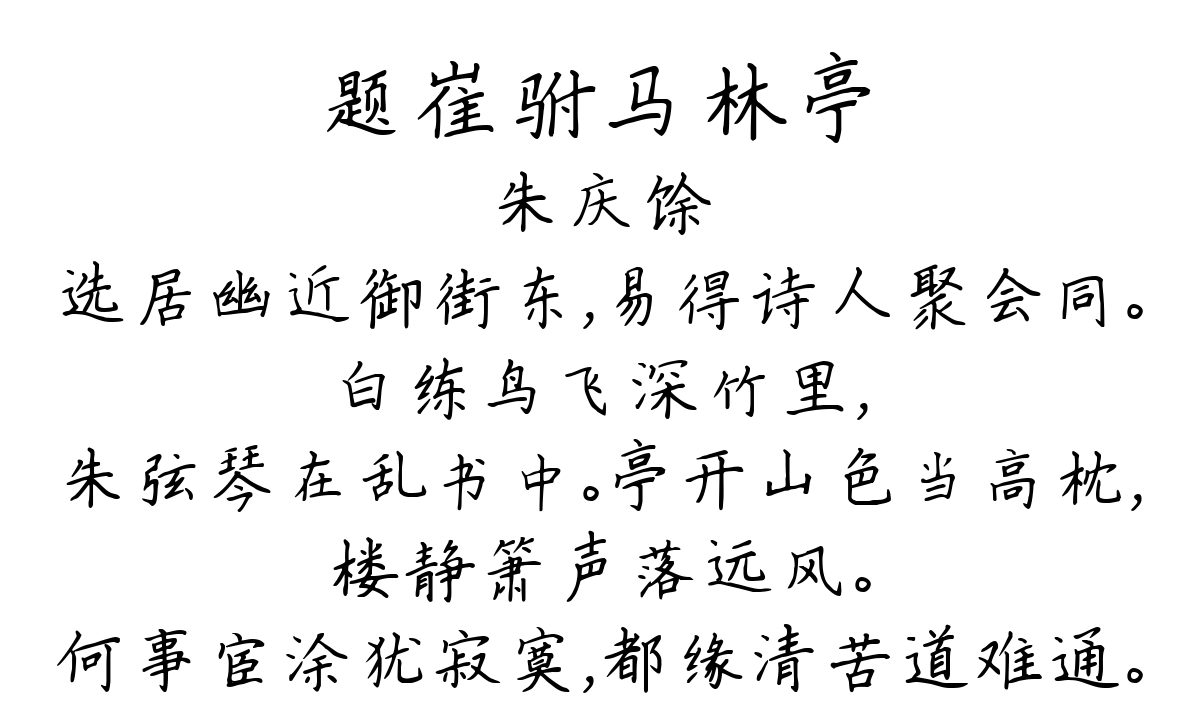 题崔驸马林亭
朱庆馀
选居幽近御街东,易得诗人聚会同。
白练鸟飞深竹里,
朱弦琴在乱书中。亭开山色当高枕,
楼静箫声落远风。
何事宦涂犹寂寞,都缘清苦道难通。